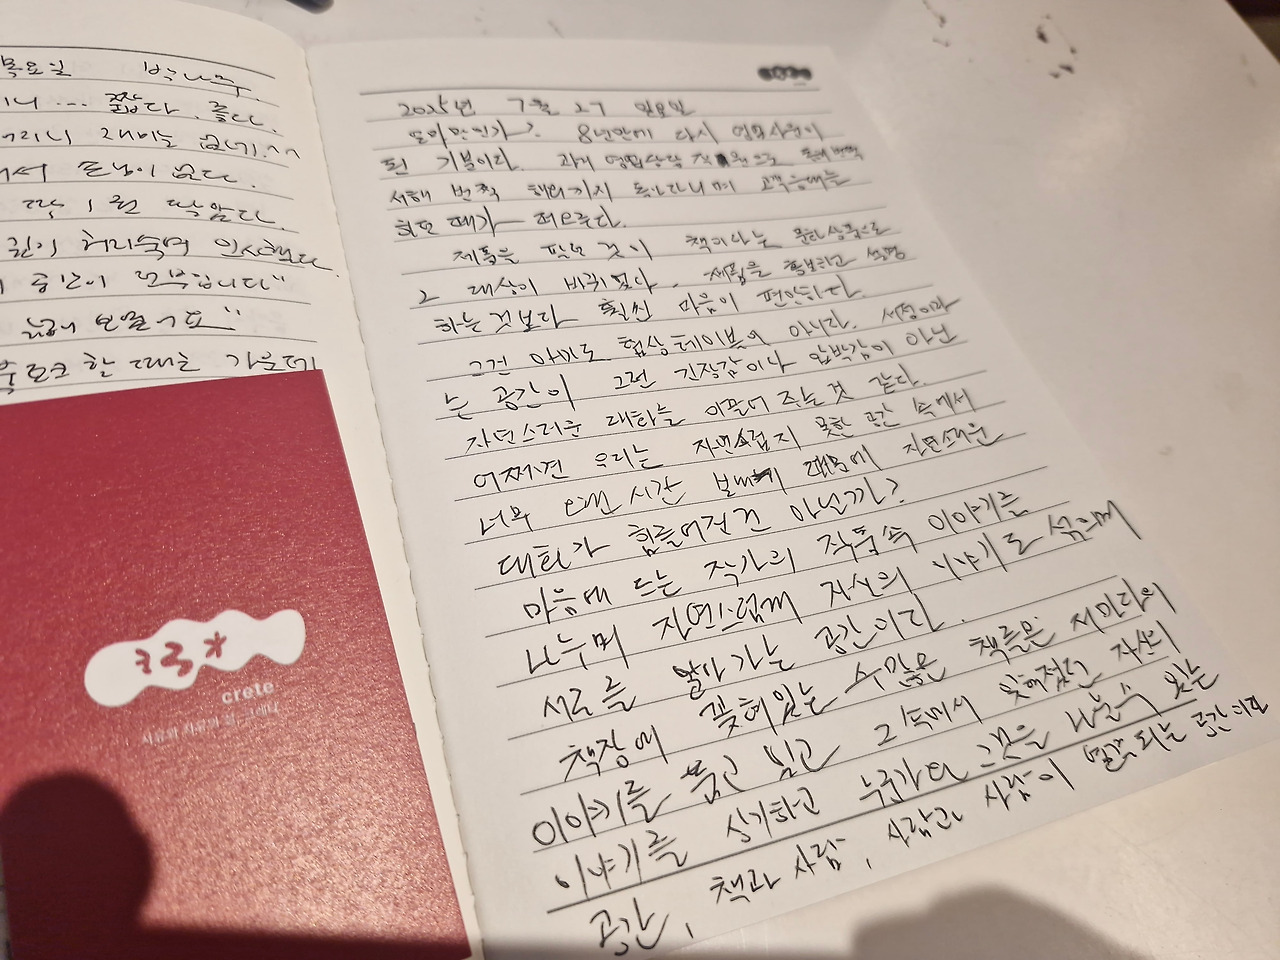 목요일 박나무.
짧다. 좋다.
재미는 없네.^^
손님이 없다.
딱 1권
허리숙여 인사했다.
전부입니다"
할 때는 가운데
2025년 7월 27 일요일
얼마만인가? 8년만에 다시 영업사원이
된 기분이다. 과거 영업상담 직원으로
서해 번쩍 해외까지 돌아다니며 고객응대를
하던 때가 떠오른다.
제품을 팔던 것이 책이라는 문화상품으로
그 대상이 바뀌었다. 제품을 홍보하고 설명
하는것보다 훨씬 마음이 편안하다.
그건 아마도 협상테이블이 아니라. 서점이라
는 공간이 그런 긴장감이나 압박감이 아닌
자연스러운 대화를 이끌어 주는것 같다.
어쩌면 우리는 자연스럽지 못한 공간 속에서
너무 오랜 시간 보냈기 때문에 자연스러운
대화가 힘들어진건 아닐까?
마음에 드는 작가의 작품속 이야기를
나누며 자연스럽게 자신의 이야기로 섞으며
서로를 알아가는 공간이다.
책장에 꽂혀있는 수많은 책들은 저마다의
이야기를 품고 있고 그속에서 잊혀졌던 자신의
이야기를 상기하고 누군가와 그것을 나눌수 있는
공간, 책과 사람, 사람과 사람이 연결되는 공간이라
크레타
crete